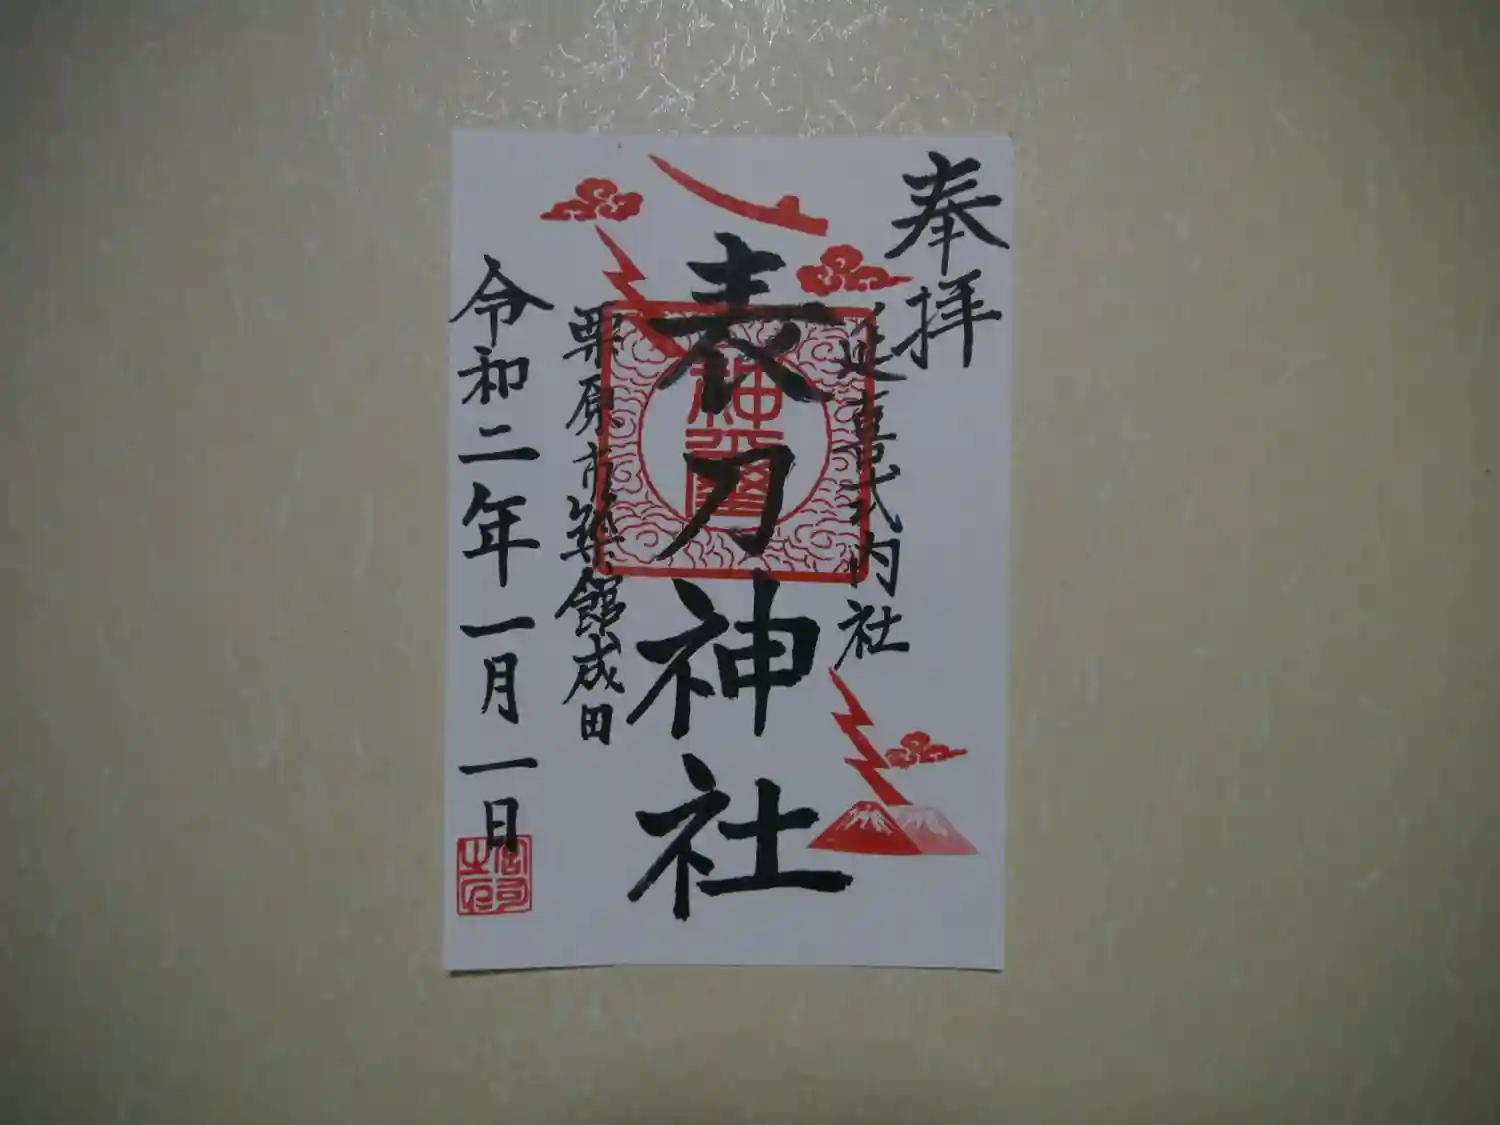 奉拝
延喜式内社
表刀神社
栗原市築館成田
令和二年一月一日